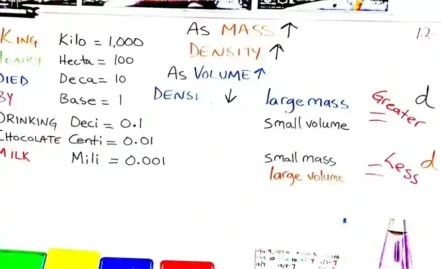 KING Kilo = 1,000
Hecta = 100
DIED Deca = 10
BY Base = 1
DRINKING Deci = 0.1
CHOCOLATE Centi = 0.01
MILK Mili = 0.001
As MASS ↑
DENSITY ↑
As VOLUME ↑
DENSI ↓
large mass
small volume
= Greater d
small mass
large volume
= Less d